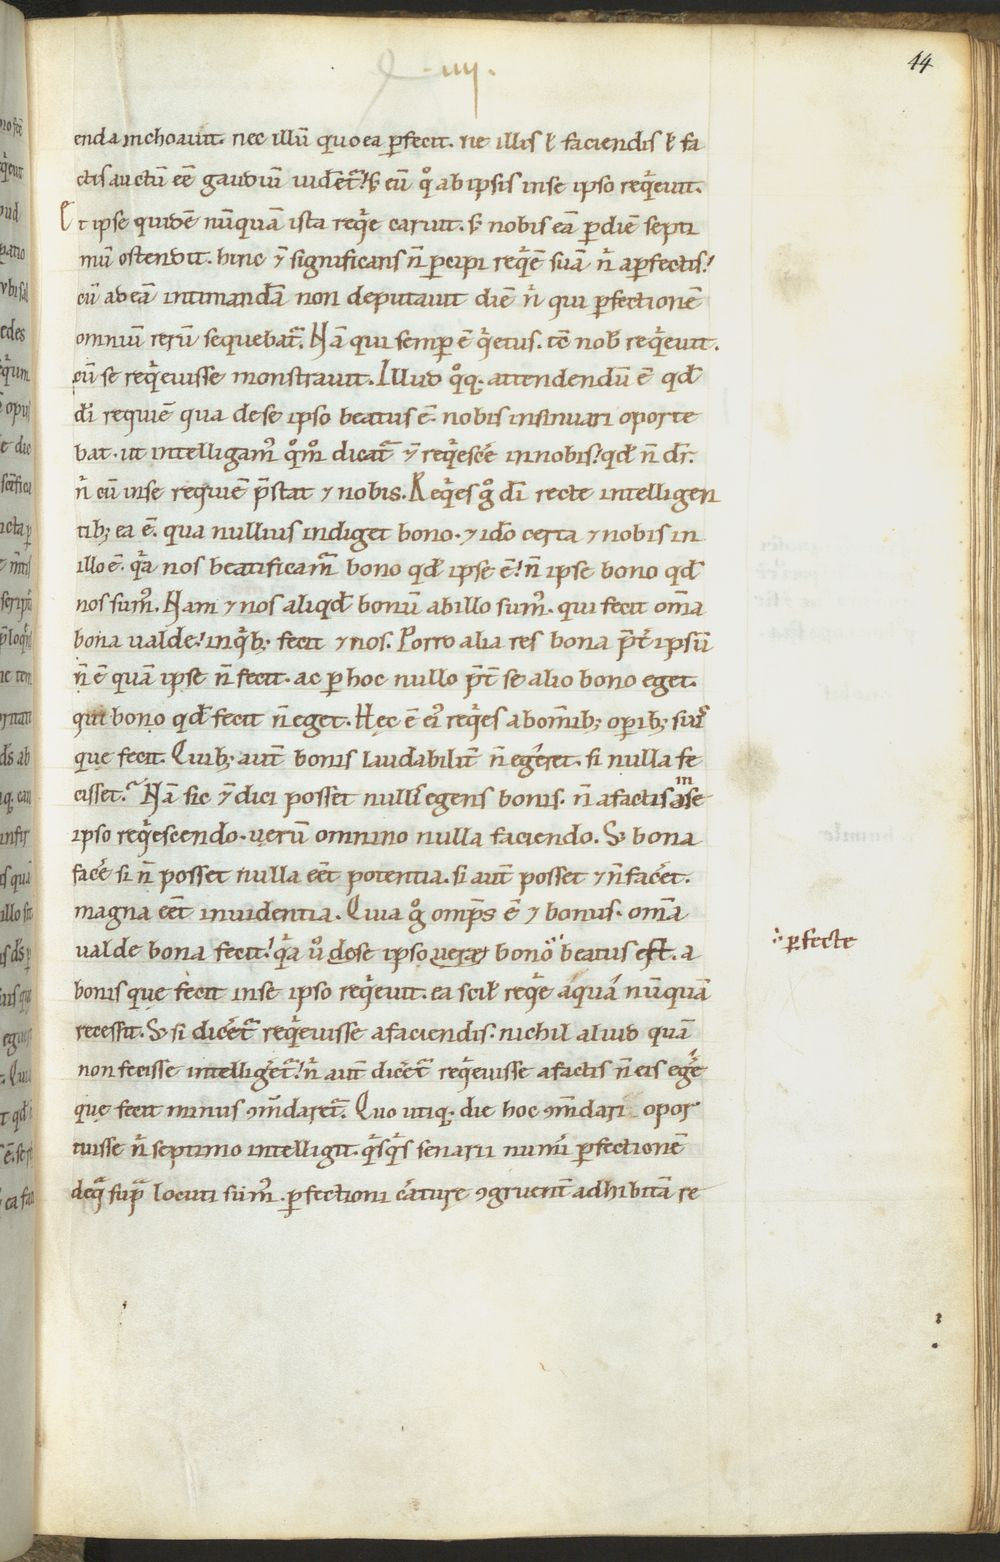 ·IIII·
44
enda inchoauit. nec illū quo ea ꝑfecit. ne illis ł faciendis ł fa
ctis auctū eē gaudiū uiderēt᷑. s; eū q̊ ab ipsis in se ipso reqͥeuit.
Et ipse quidē nūquā ista reqͥe caruit. s; nobis eā ꝑ diē septi
mū ostendit. hinc ⁊ significans ñ ꝑcipi reqͥē suā nͥ a ꝑfectis.
cū ad eā intimandā non deputauit diē nͥ qui ꝑfectionē
omniū rerū sequebat᷑. Nā qui semper ē qͥetus. tc̄ nob̄ reqͥeuit.
cū se reqͥeuisse monstrauit. Illud q̊q; attendendū ē qđ
di requiē qua de se ipso beatus ē. nobis insinuari oporte
bat. ut intelligam᷒ q̊m̊ dicat᷑ ⁊ reqͥescē in nobis. qđ ñ dr̄.
nͥ cū in se requiē p̄stat ⁊ nobis. Reqͥes g̊ di recte intelligen
tib; ea ē. qua nullius indiget bono. ⁊ ido certa ⁊ nobis in
illo ē. qͣa nos beatificam᷑ bono qđ ipse ē. ñ ipse bono qđ
nos sum᷒. Nam ⁊ nos aliqđ bonū ab illo sum᷒. qui fecit om̄a
bona ualde. in qͥb; fecit ⁊ nos. Porro alia res bona p̄t̄ ipsū
ñ ē quā ipse ñ fecit. ac ꝑ hoc nullo p̄t̄ se alio bono eget.
qui bono qđ fecit ñ eget. Hęc ē ei᷒ reqͥes ab om̄ib; oꝑib; suis
que fecit. Quib; aut̄ bonis laudabilit̄ ñ egeret. si nulla fe
cisset. Nā sic ⁊ dici posset nullis egens bonis. ñ a factis in se
ipso reqͥescendo. uerū omnino nulla faciendo. S; bona
facē si ñ posset nulla eēt potentia. si aut̄ posset ⁊ ñ facēt.
magna eēt inuidentia. Quia g̊ omp̄s ē ⁊ bonus. om̄a
ualde bona fecit. qͣa ů de se ipso uera bono beatus est. a
⸫ ꝑfecte
bonis que fecit in se ipso reqͥeuit. ea scił reqͥe a qua nūquā
recessit. S; si dicēt᷑ reqͥeuisse a faciendis. nichil aliud quā
non fecisse intelligēt᷑. nͥ aut̄ dicēt᷑ reqͥeuisse a factis ñ eis egēe
que fecit minus ꝯm̄daret᷑. Quo utiq; die hoc ꝯm̄dari opor
tuisse nͥ septimo intelligit. qͥsqͥs senarii num̄i ꝑfectionē
de q̄ sup̄ locuti sum᷒. ꝑfectioni c̄ature ꝯgruent̄ adhibitā re